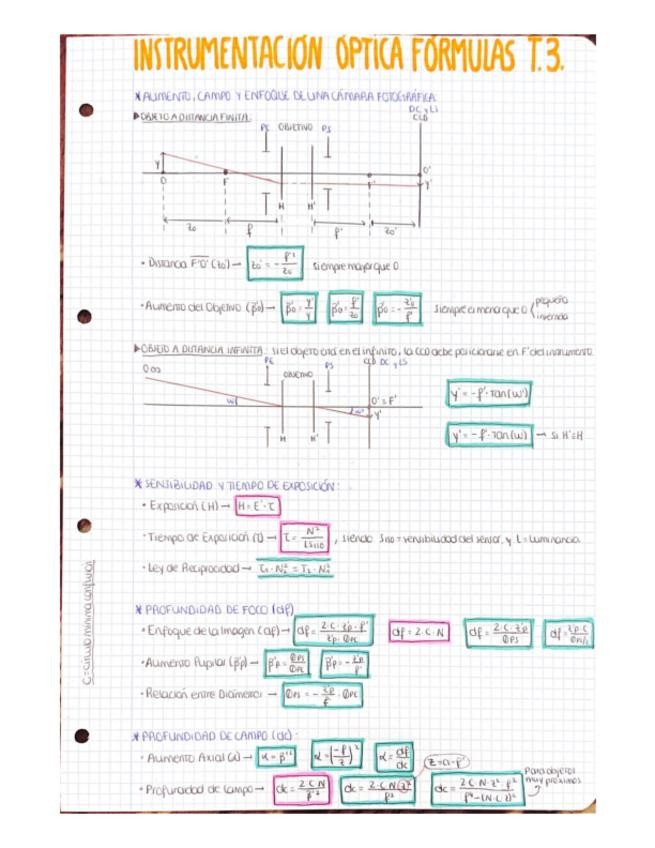 INSTRUMENTACIÓN ÓPTICA FÓRMULAS T.3.
* AUMENTO, CAMPO Y ENFOQUE DE UNA CÁMARA FOTOGRÁFICA:
▶ OBJETO A DISTANCIA FINITA:
DC y LS
CCD
PE OBJETIVO PS
y O F H H' F' O' y'
z₀ f f' z₀'
· Distancia F'O' (z₀') → z₀' = - f'²/z₀ siempre mayor que 0
· Aumento del Objetivo (β'₀) → β'₀ = y'/y β'₀ = f'/z₀ β'₀ = - z₀'/f' siempre es menor que 0 { pequeña
invertida
▶ OBJETO A DISTANCIA INFINITA: si el objeto está en el infinito, la CCD debe posicionarse en F' del instrumento.
PE OBJETIVO PS CCD DC y LS
O∞ w H H' w' O' ≡ F' y'
y' = -f'·tan(w')
y' = -f'·tan(w) → Si H' ≡ H
* SENSIBILIDAD Y TIEMPO DE EXPOSICIÓN:
· Exposición (H) → H = E'·τ
· Tiempo de Exposición (τ) → τ = N²/(L S), siendo = sensibilidad del sensor, y L = Luminancia
· Ley de Reciprocidad → τ₁·N₂² = τ₂·N₁²
C = círculo mínima confusión
* PROFUNDIDAD DE FOCO (df)
· Enfoque de la Imagen (df) → df = 2·C·z'p·f'/(zp·ØPE) df = 2·C·N df = 2·C·z'p/ØPS
· Aumento Pupilar (β'p) → β'p = ØPS/ØPE β'p = - z'p/f'
· Relación entre Diámetros → ØPS = - z'p/f' · ØPE
* PROFUNDIDAD DE CAMPO (dc):
· Aumento Axial (α) → α = β'² α = (-f/z)² α = df/dc
z = a - f'
· Profundidad de Campo → dc = 2·C·N/β'² dc = 2·C·N·z²/f'² dc = 2·C·N·z²·f'²/(f'⁴-(N·C·z)²)
Para objetos
muy próximos